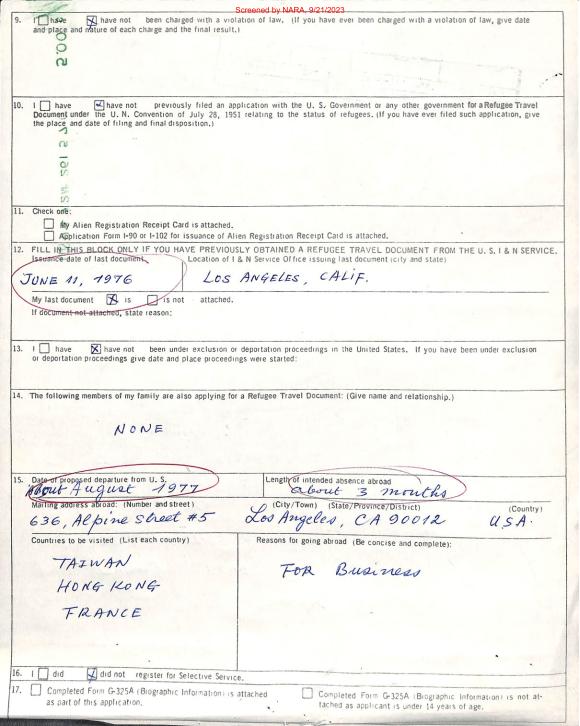 Screened by NARA, 9/21/2023
9. I have have not been charged with a violation of law. (If you have ever been charged with a violation of law, give date
and place and nature of each charge and the final result.)
10. I have have not previously filed an application with the U. S. Government or any other government for a Refugee Travel
Document under the U. N. Convention of July 28, 1951 relating to the status of refugees. (If you have ever filed such application, give
the place and date of filing and final disposition.)
11. Check one:
My Alien Registration Receipt Card is attached.
Application Form I-90 or I-102 for issuance of Alien Registration Receipt Card is attached.
12. FILL IN THIS BLOCK ONLY IF YOU HAVE PREVIOUSLY OBTAINED A REFUGEE TRAVEL DOCUMENT FROM THE U. S. I & N SERVICE.
Issuance date of last document Location of I & N Service Office issuing last document (city and state)
JUNE 11, 1976 LOS ANGELES, CALIF.
My last document is is not attached.
If document not attached, state reason:
13. I have have not been under exclusion or deportation proceedings in the United States. If you have been under exclusion
or deportation proceedings give date and place proceedings were started:
14. The following members of my family are also applying for a Refugee Travel Document: (Give name and relationship.)
NONE
15. Date of proposed departure from U. S. Length of intended absence abroad
About August 1977 about 3 months
Mailing address abroad: (Number and street) (City/Town) (State/Province/District) (Country)
636, Alpine Street #5 Los Angeles, CA 90012 USA.
Countries to be visited (List each country) Reasons for going abroad (Be concise and complete):
TAIWAN FOR Business
HONG KONG
FRANCE
16. I did did not register for Selective Service.
17. Completed Form G-325A (Biographic Information) is attached
as part of this application.
Completed Form G-325A (Biographic Information) is not at-
tached as applicant is under 14 years of age.